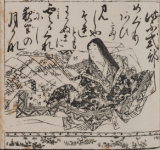 紫式部
めぐり
あひて
見しや
それとも
わかぬまに
雲がくれにし
夜半の
月かな